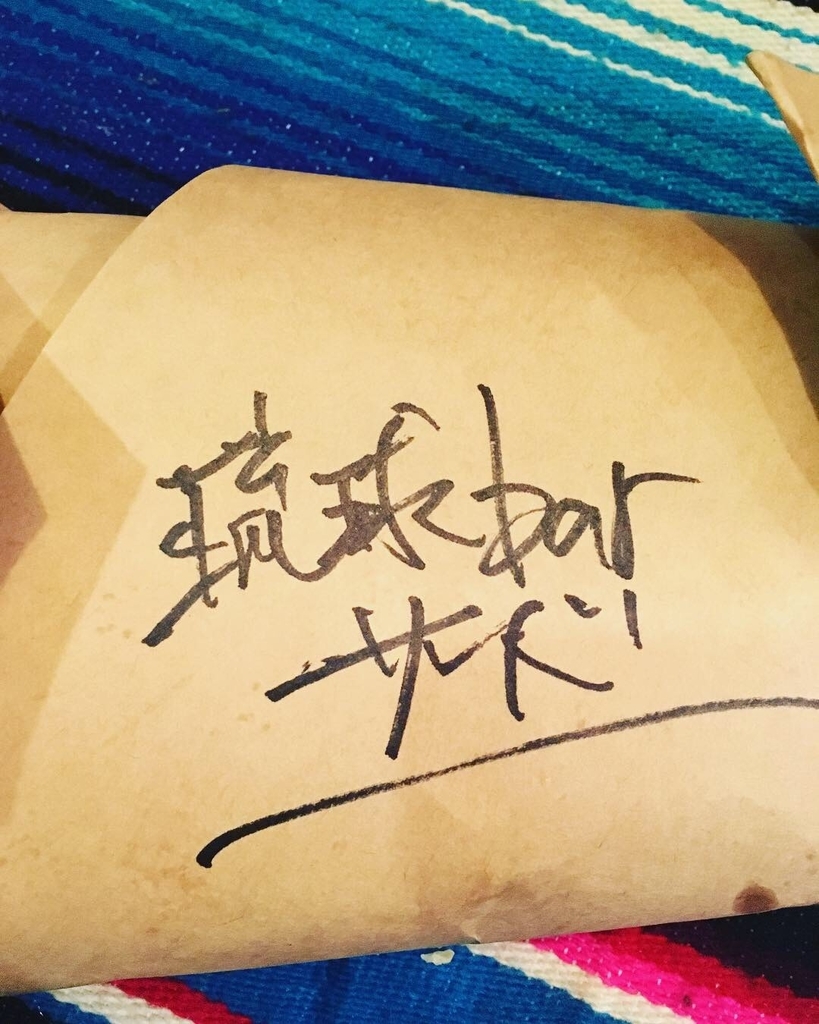 琉球bar
サイド